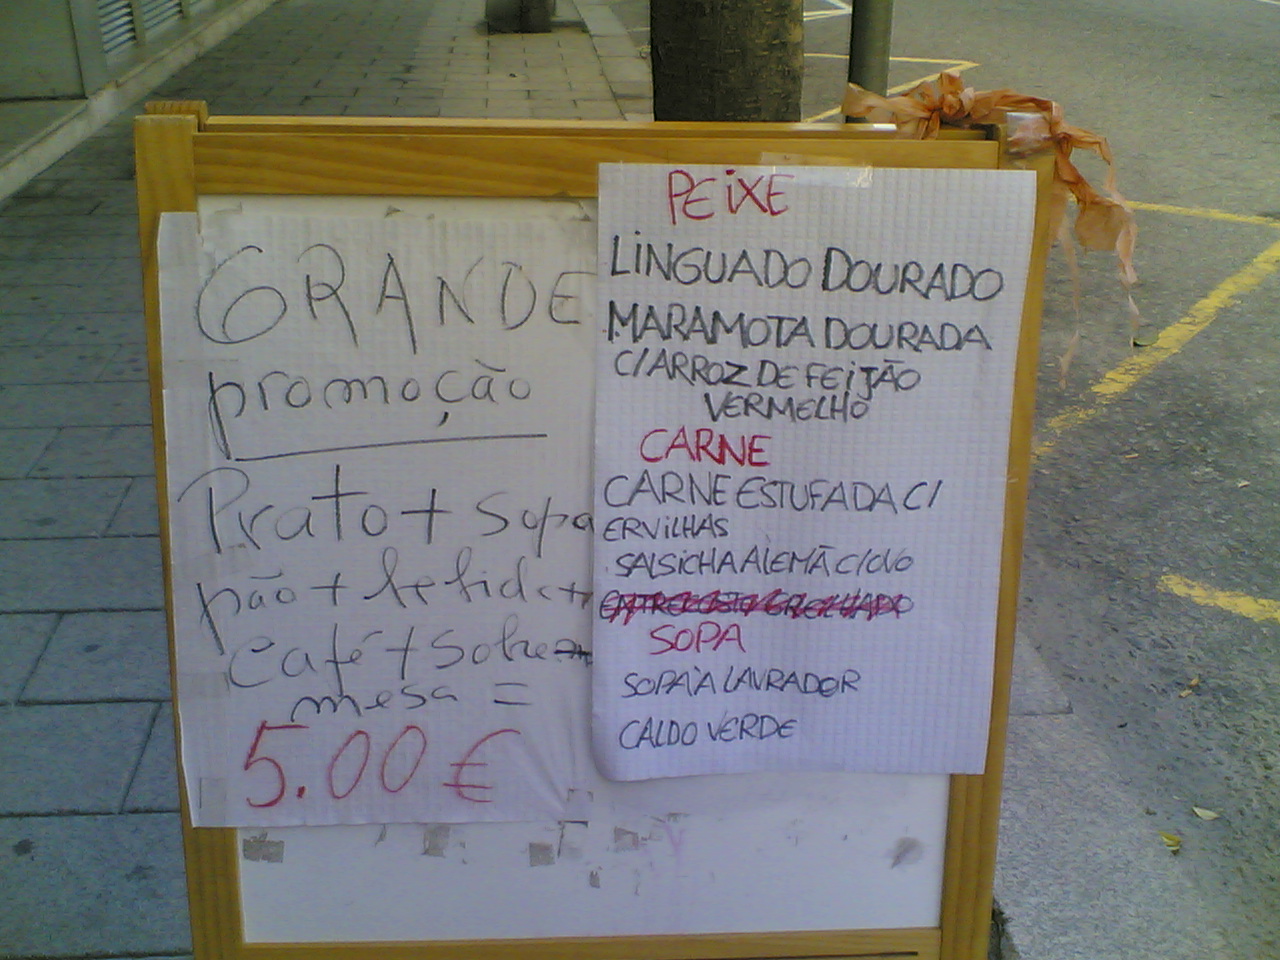 GRANDE
promoção
Prato + Sopa
pão + bebida +
Café + Sobre
mesa =
5.00 €
PEiXE
LiNGUADO DOURADO
MARAMOTA DOURADA
C/ARROZ DE FEiJÃO
VERMELHO
CARNE
CARNE ESTUFADA C/
ERViLHAS
SALSiCHA ALEMÃ C/OVO
ENTRECOSTO GRELHADO
SOPA
SOPA À LAVRADOR
CALDO VERDE